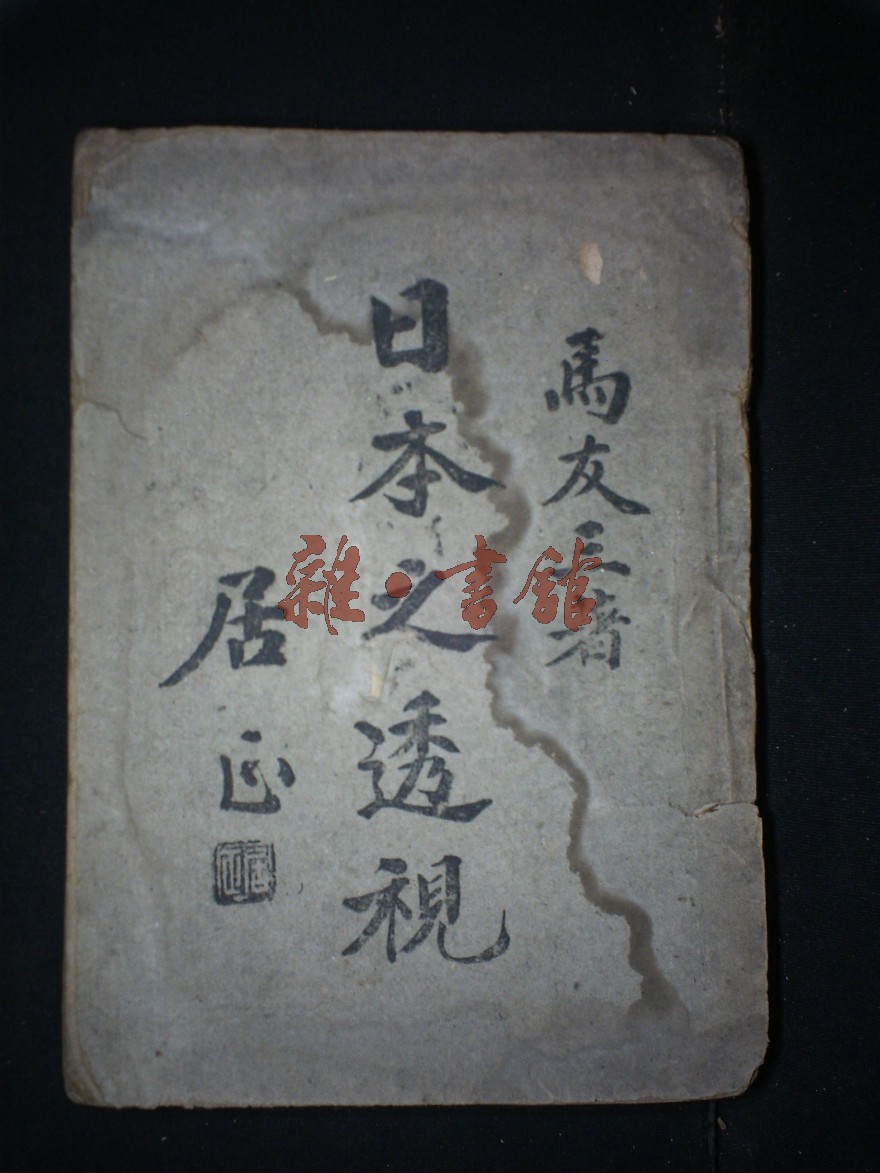 馬友三著
日本之透視
居正
雜·書館